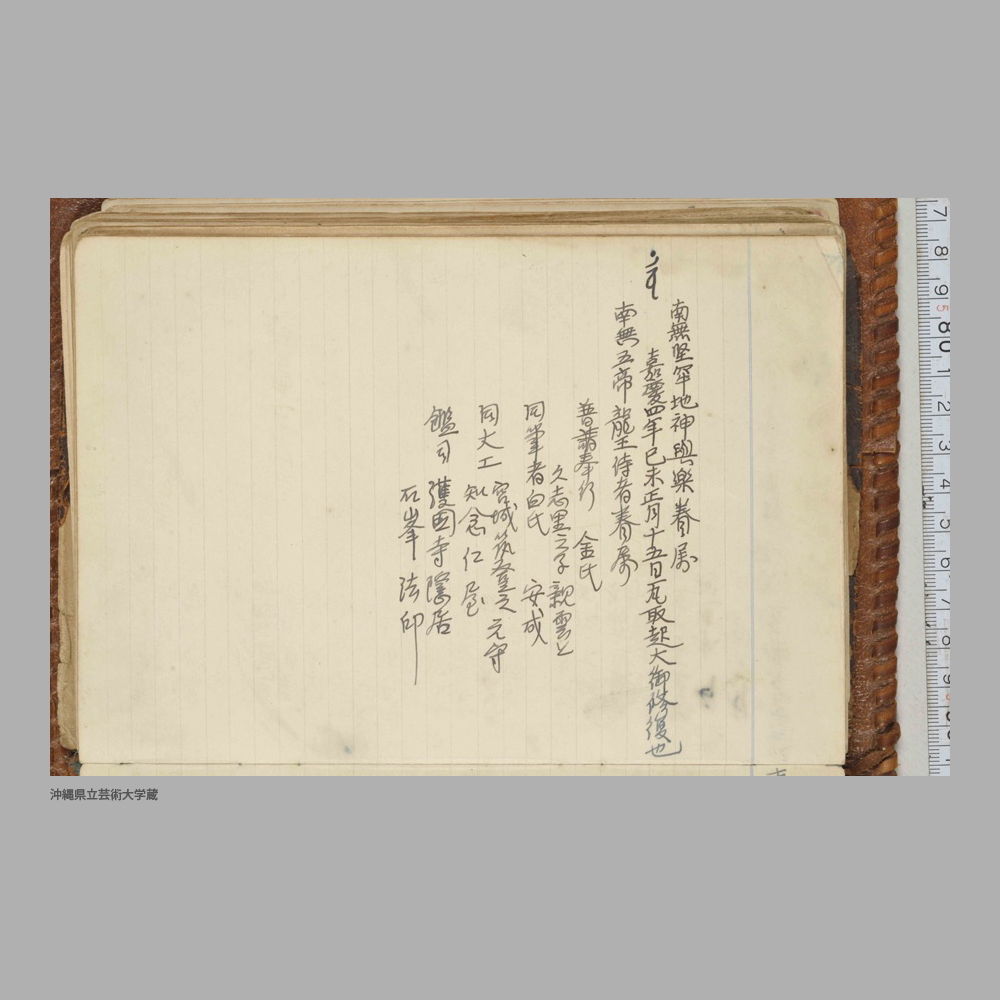 南無堅牢地神與楽眷属
嘉慶四年己未正月十五日瓦取起大御修復也
南無五帝龍王侍者眷属
普請奉行 金氏
久志里之子親雲上
同筆者白氏 安成
宮城筑登之元守
同大工 知念仁屋
鑑司 護国寺隠居
石峯 法印
7 8 9 80 1 2 3 4 5 6 7 8 9
沖縄県立芸術大学蔵